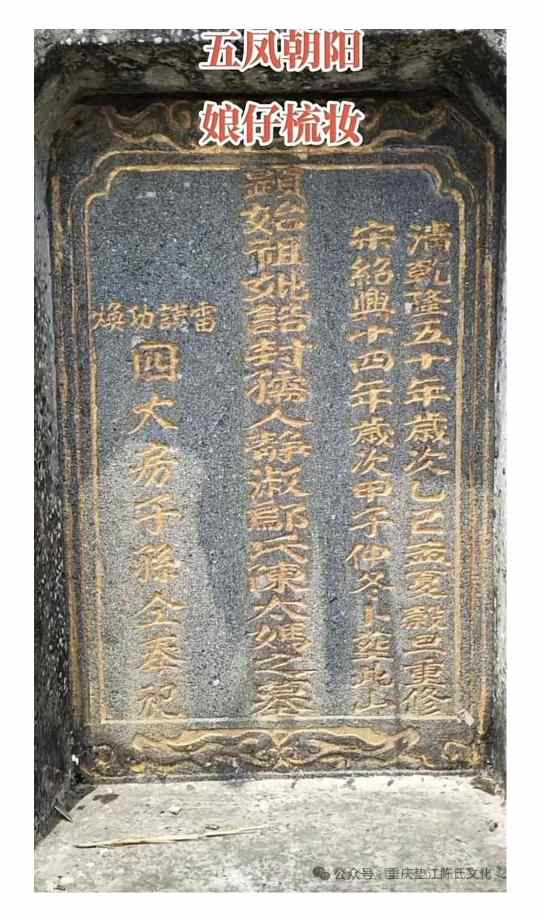 五凤朝阳
娘仔梳妆
清乾隆五十年歲次乙巳孟夏穀旦重修
宋紹興十四年歲次甲子仲冬卜葬此山
顯始祖妣誥封孺人靜淑鄺氏陳太媽之墓
雷謨功煥
四大房子孫仝奉祀
公众号 · 重庆垫江陈氏文化